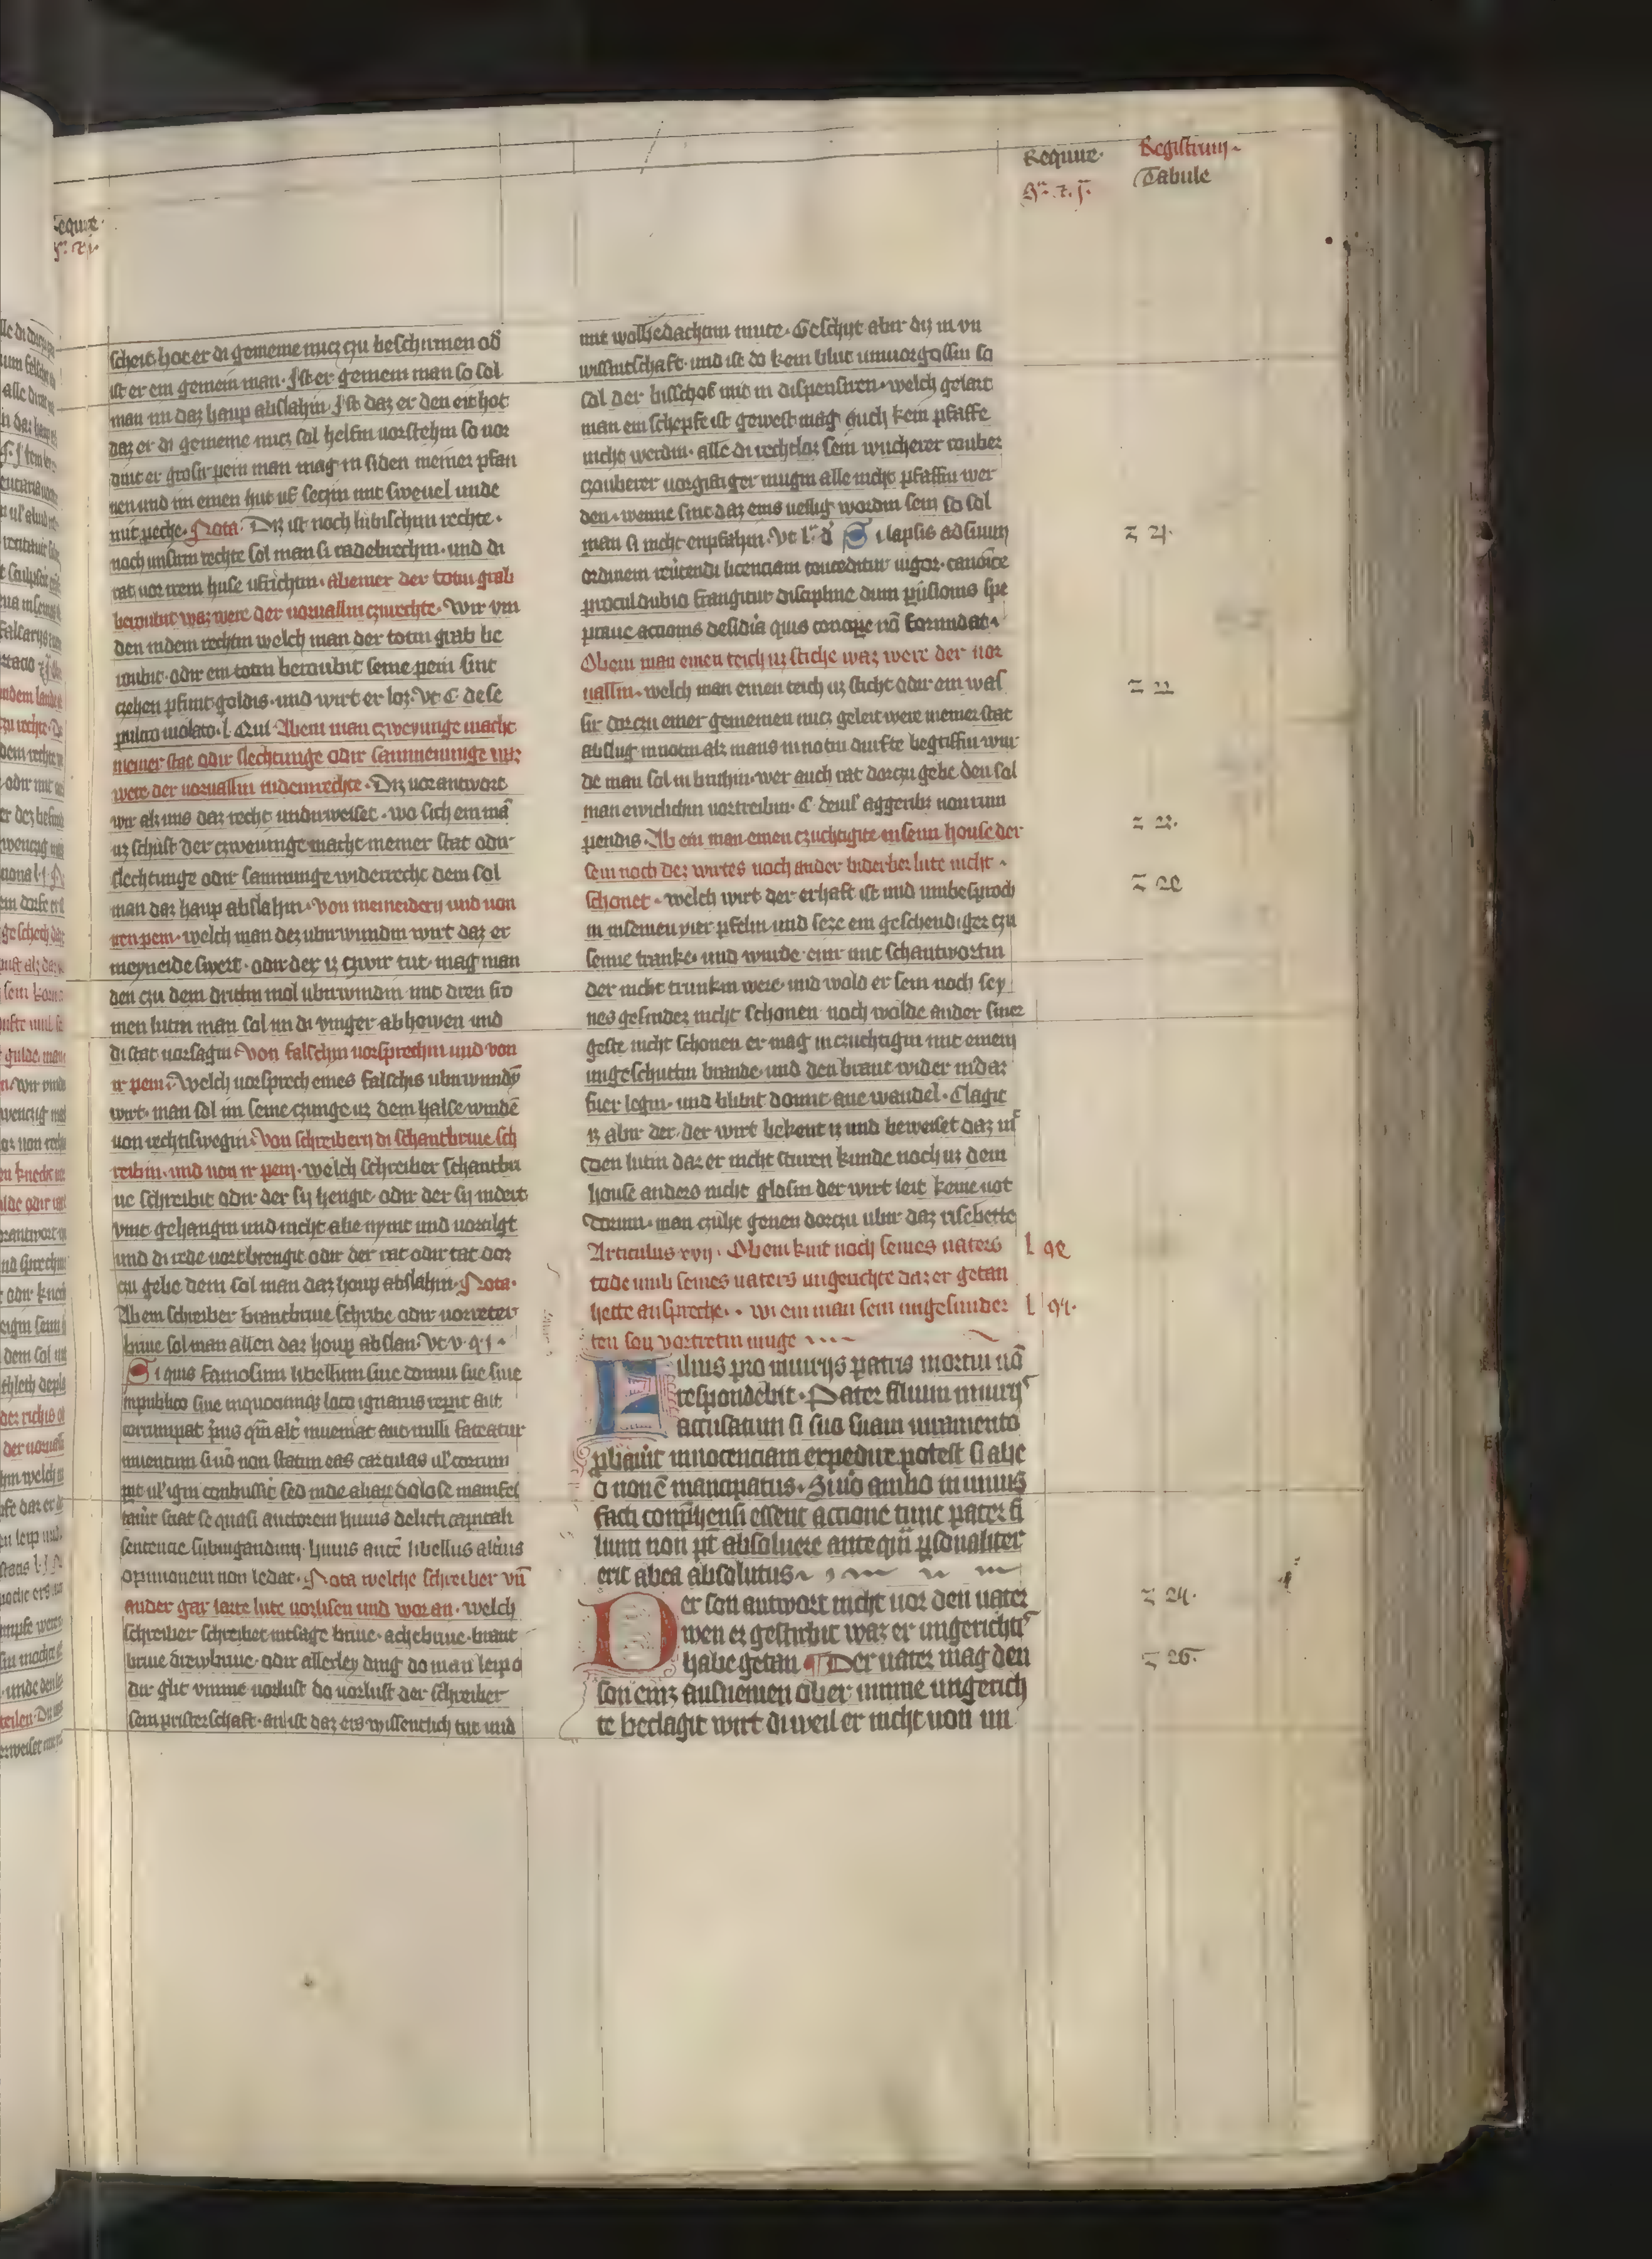 Require
Registrum
Tabule
scheit hot er di gemeine nucz czu beschirmen od
ist er ein gemein man. Ist er gemein man so sol
man im daz haup abslahin. Ist daz er den eit hot
daz er di gemeine nucz sol helfin vorstehin so vor
dint er grosir pein man mag in siden in einer pfan
nen und im einen hut uf seczin mit swevel unde
mit peche. Nota. Diz ist noch lubischin rechte.
noch unsirm rechte sol man si radebrechin. und di
rat vor irem huse ufrichtin. Ab einer der totin grab
beroubit waz were der vorvallin czurechte. Wir vin
den in dem rechtin welch man der totin grab be
roubit. odir ein totin beroubit seine pein sint
czehen pfunt goldis. und wirt er loz. Ut C de se
pulcro violato. l. Qui. Ab ein man czweyunge mache
in einer stat odir slechtunge odir sammenunge waz
were der vorvallin in dem rechte. Diz vorantwort
wir alz uns daz recht undirweiset. wo sich ein ma
uz schust der czweiunge macht in einer stat odir
slechtunge odir sammunge widerrecht dem sol
man daz haup abslahin. von meineidern und von
iren pein. welch man dez ubirwundin wirt daz er
meyneide swert. odir der iz czwir tut. mag man
den czu dem dritin mol ubirwindin mit dren fro
men lutin man sol im di vinger abhowen und
di stat vorsagin. Von falschin vorsprechin und von
ir pein. Welch vorsprech eines falschis ubirwundin
wirt. man sol im seine czunge uz dem halse windē
von rechtiswegin. Von schreibern di schantbrive sch
reibin. und von ir pein. welch schreiber schantbri
ve schreibit odir der sy hengit. odir der sy in der it
vint gehangin und nicht abe nymt und vortilgt
und di rede vort brengit odir der rat odir tat dor
czu gebe dem sol man daz houp abslahin. Nota.
Ab ein schreiber brantbrive schribe odir vorreter
brive sol man allen daz houp abslan. Ut v. q. i.
Si quis famosum libellum sive domui sue sive
in publico sive in quocunqz loco ignarus repit aut
corrumpat prius qm alt inveniat aut nulli fateatur
inventum si vo non statim eas cartulas ul corrum
pit ul igni combussit sed inde aliam dolose manifes
tavit sciat se quasi auctorem huius delicti capitali
sentencie subiugandum. huius aute libellus alicuius
opinionem non ledat. Nota welche schreiber un
ander gar larte lute vorlisen und woran. welch
schreiber schreibet insage brive. achebrive. brant
brive drewbrive. odir allerley ding do man leip o
dir glit umme vorlust do vorlust der schreiber
sein pristerschaft. an ist daz ers wissentlich tut und
mit wolbedachtim mute. Geschiet abir diz in un
wissintschaft. und ist do kein blut in vorgossin so
sol der bisschof mit im dispensiren. welch gelart
man ein schepfe ist gewest mag ouch kein pfaffe
nicht werdin. alle di rechtloz sein wucherer rouber
czouberer vorgiftiger mugin alle nicht pfaffin wer
den. wenne sint daz eins vellig wordin sein so sol
man si nicht enpfahin. Ut l. d. Si lapsis ad suum
ordinem revertendi licencia conceditur vigor canonice
procul dubio frangitur discipline dum
prave actionis desidia quis concipe no formidat.
Ob ein man einen teich uz stiche waz were der vor
vallin. welch man einen teich uz sticht odir ein was
sir dorczu einer gemeinen nucz geleit were in einer stat
abslug in notin alz mans in notin durfte begriffin wur
de man sol in burnin. wer auch rat dorczu gebe. den sol
man ewiclichin vortreibin. C. de nili aggeribz non rum
pendis. Ab ein man einen czuchtigite in seim house der
sein noch dez wirtes noch ander biderber lute nicht.
schonet. welch wirt der erhaft ist und umbesproch
in in seinen vier pfelin und seze ein geschendiger czu
seime tranke. und wurde eyn mit schantwortin
der nicht trunkin were. und wold er sein noch sey
nes gesindez nicht schonen noch wolde ander siner
geste nicht schonen er mag in czuchtigin mit einem
ungeschutim brande. und den brant wider in daz
fuer legin. und blibit domit ane wandel. Clagit
iz abir der. der wirt bekent iz und beweiset daz mit
czwen lutin daz er nicht sturen kunde noch uz dem
house anders nicht glosin der wirt leit keine not
dorum. man czuhe genen dorczu ubir daz rischette
Articulus xvii. Ob ein kint noch seines vaters
tode umb seines vaters ungerichte daz er getan
hette ansprech. . wi ein man sein ungesunder
ten son vortretin muge
Filius pro iniuriis patris mortui nō
respondebit. Pater filium iniurii
accusatum si suo suam iuramento
pbavit innocenciam expedire potest si ab e
o non ē mancipatus. Si vo ambo in unius
facti comprehensi essent accione tunc pater fi
lium non pt absolvere ante qm psonaliter
erit ab ea absolutus
Der son antwort nicht vor den vater
wen er gestirbit waz er ungerichts
habe getan. Der vater mag den
son eins ausnemen ober umme ungerich
te beclagit wirt di weil er nicht von im
z 21.
z 22
z 23.
z 24.
z 26.